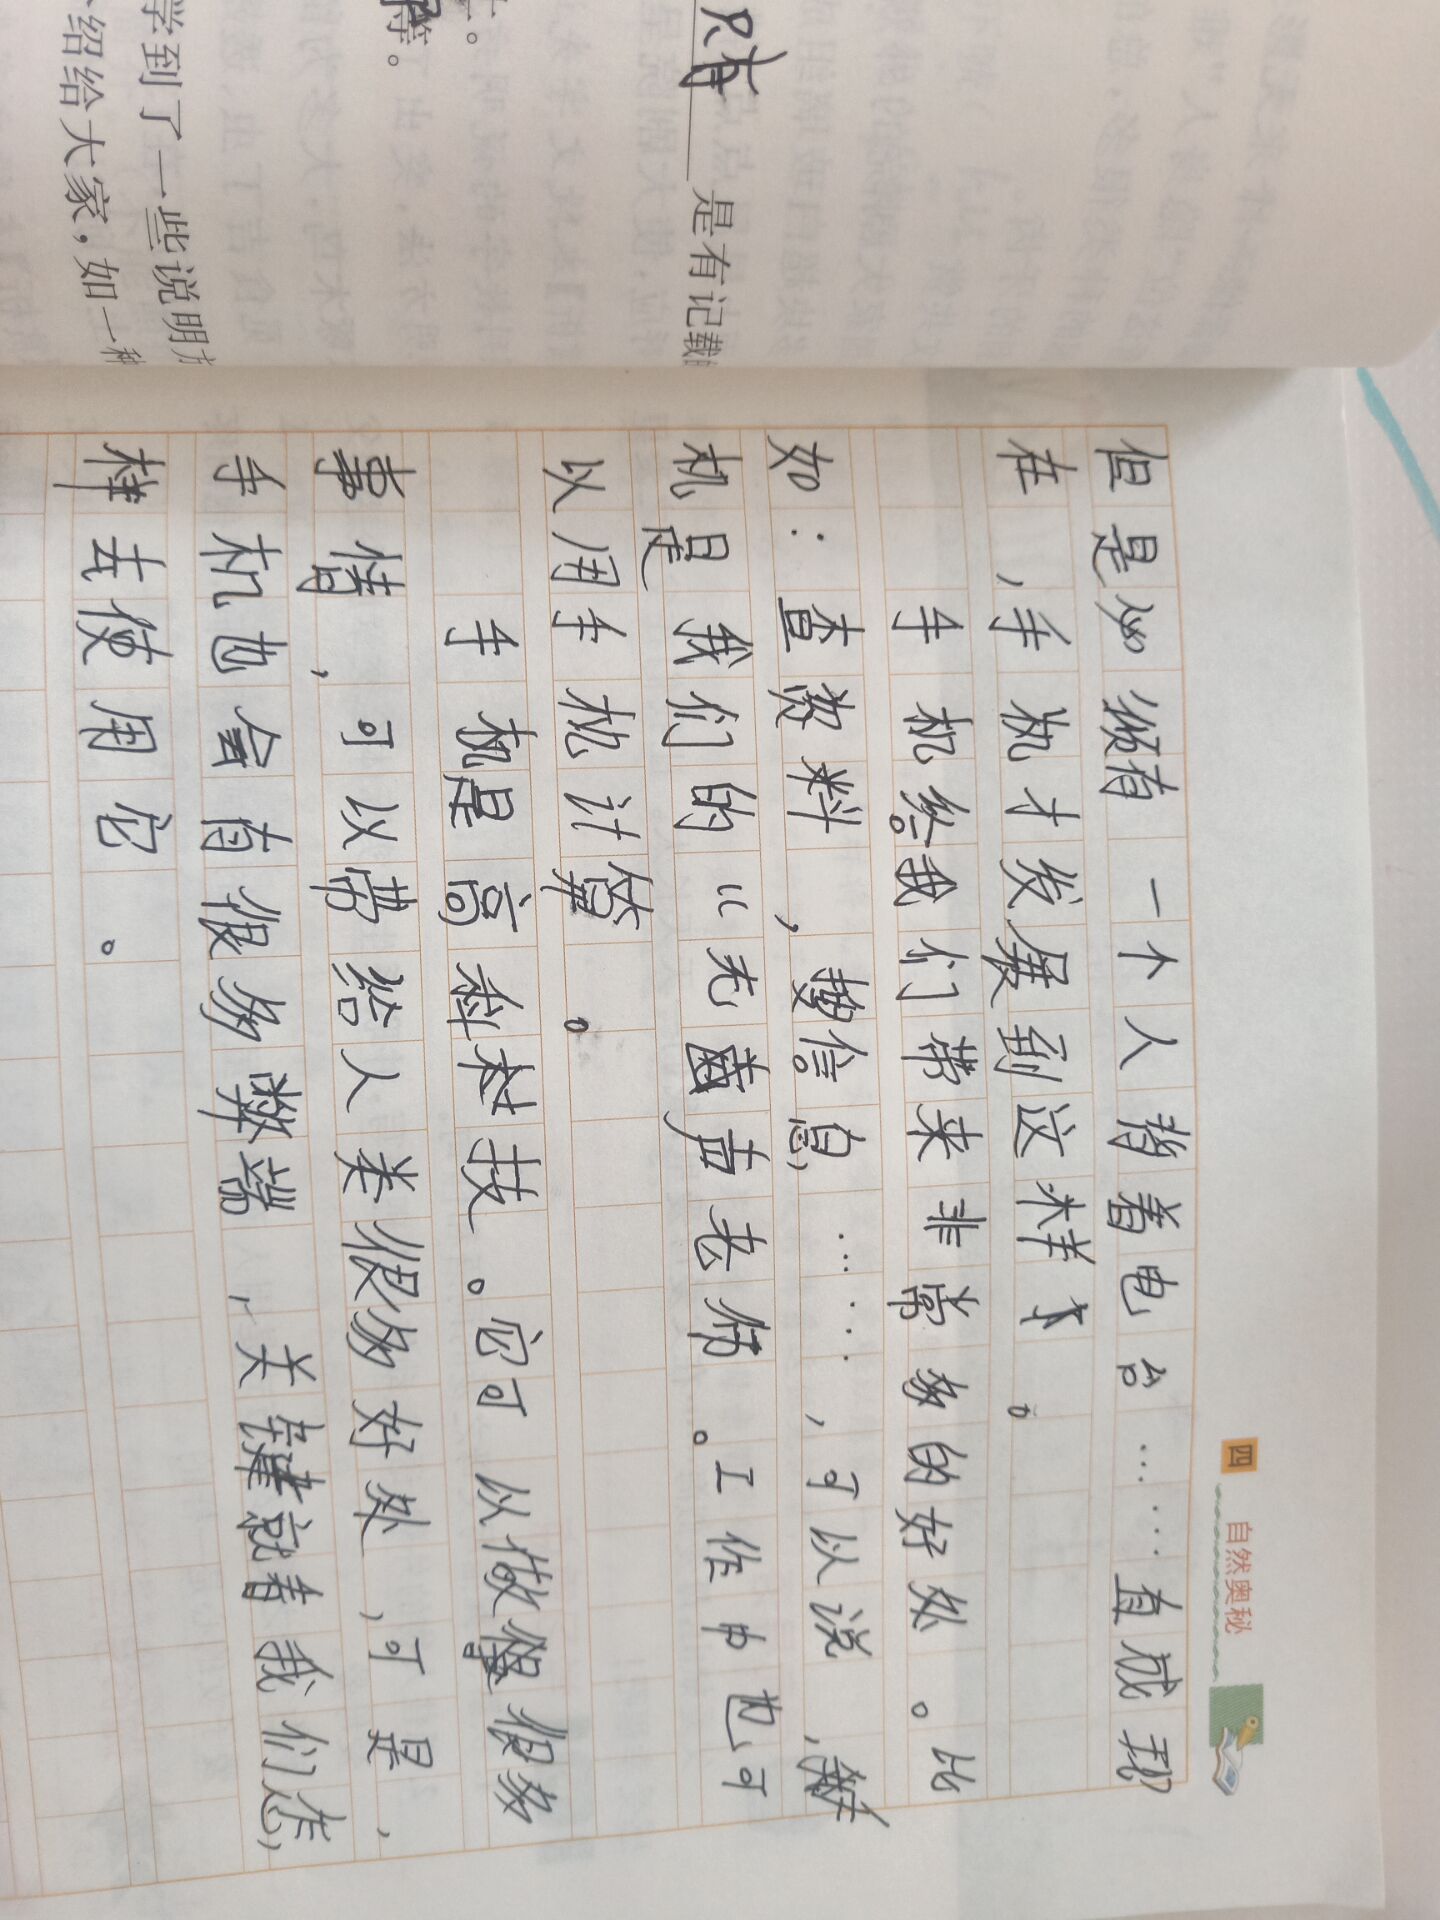 学到了一些说明方
介绍给大家，如一种
等。
只有 是有记载
四 自然奥秘
但是必须有一个人背着电台……直威现
在，手机才发展到这样才。
手机给我们带来非常多的好处。比
如：查资料，搜信息，……，可以说，
机是我们的“无齿声老师。工作中也可
以用手机计算。
手机是高科村技。它可以做很多
事情，可以带给人类很多好处，可是，
手机也会有很多弊端，关键就看我们怎
样去使用它。